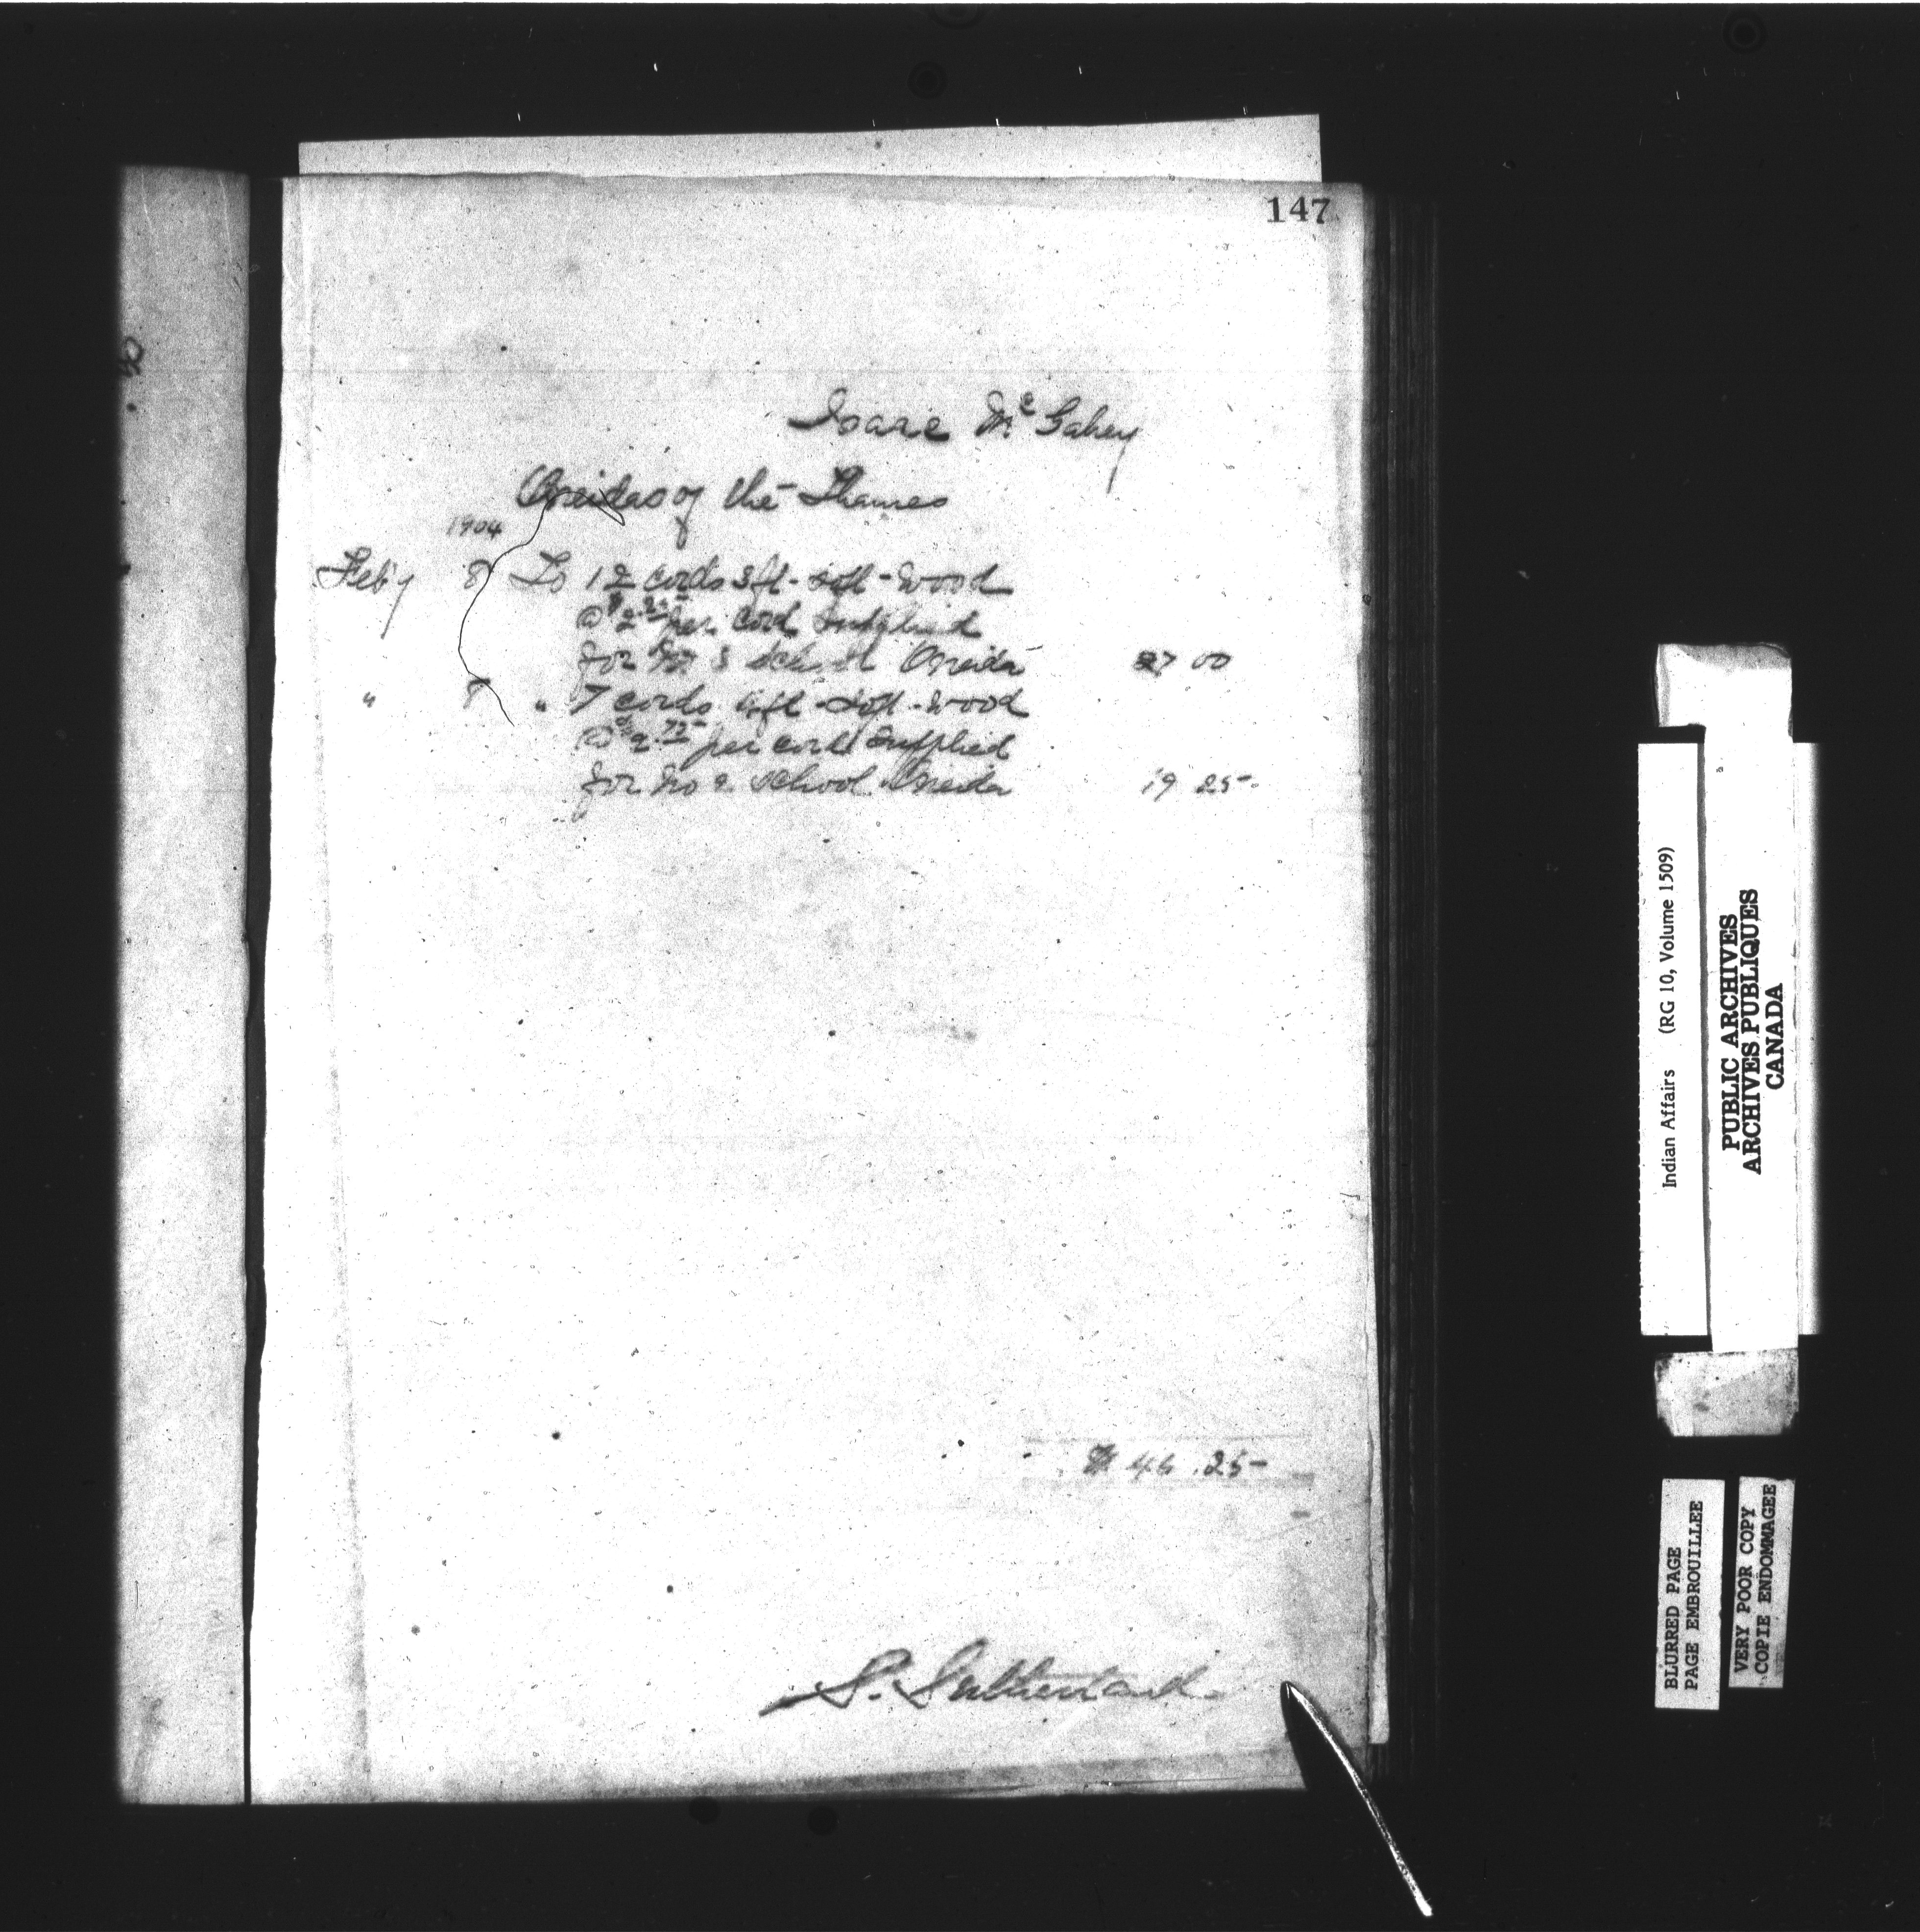 147
Isaac McGahey
Oneidas of the Thames
1904
Feb'y 8 To 12 cords 3 ft. soft-wood
@ $2.25 per cord supplied
for No. 3 school Oneida 27 00
" 8 " 7 cords 4 ft soft-wood
@ $2.75 per cord supplied
for No 2 school Oneida 19 25
$ 46.25
S. Sutherland
Indian Affairs (RG 10, Volume 1509)
PUBLIC ARCHIVES
ARCHIVES PUBLIQUES
CANADA
BLURRED PAGE
PAGE EMBROUILLEE
VERY POOR COPY
COPIE ENDOMMAGEE